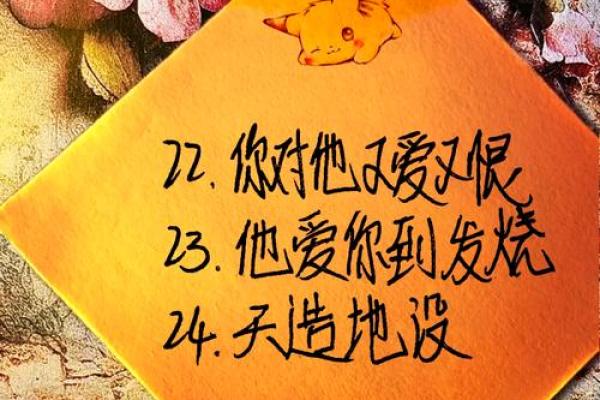 22. 你对他又爱又恨
23. 他爱你到发烧
24. 天造地设